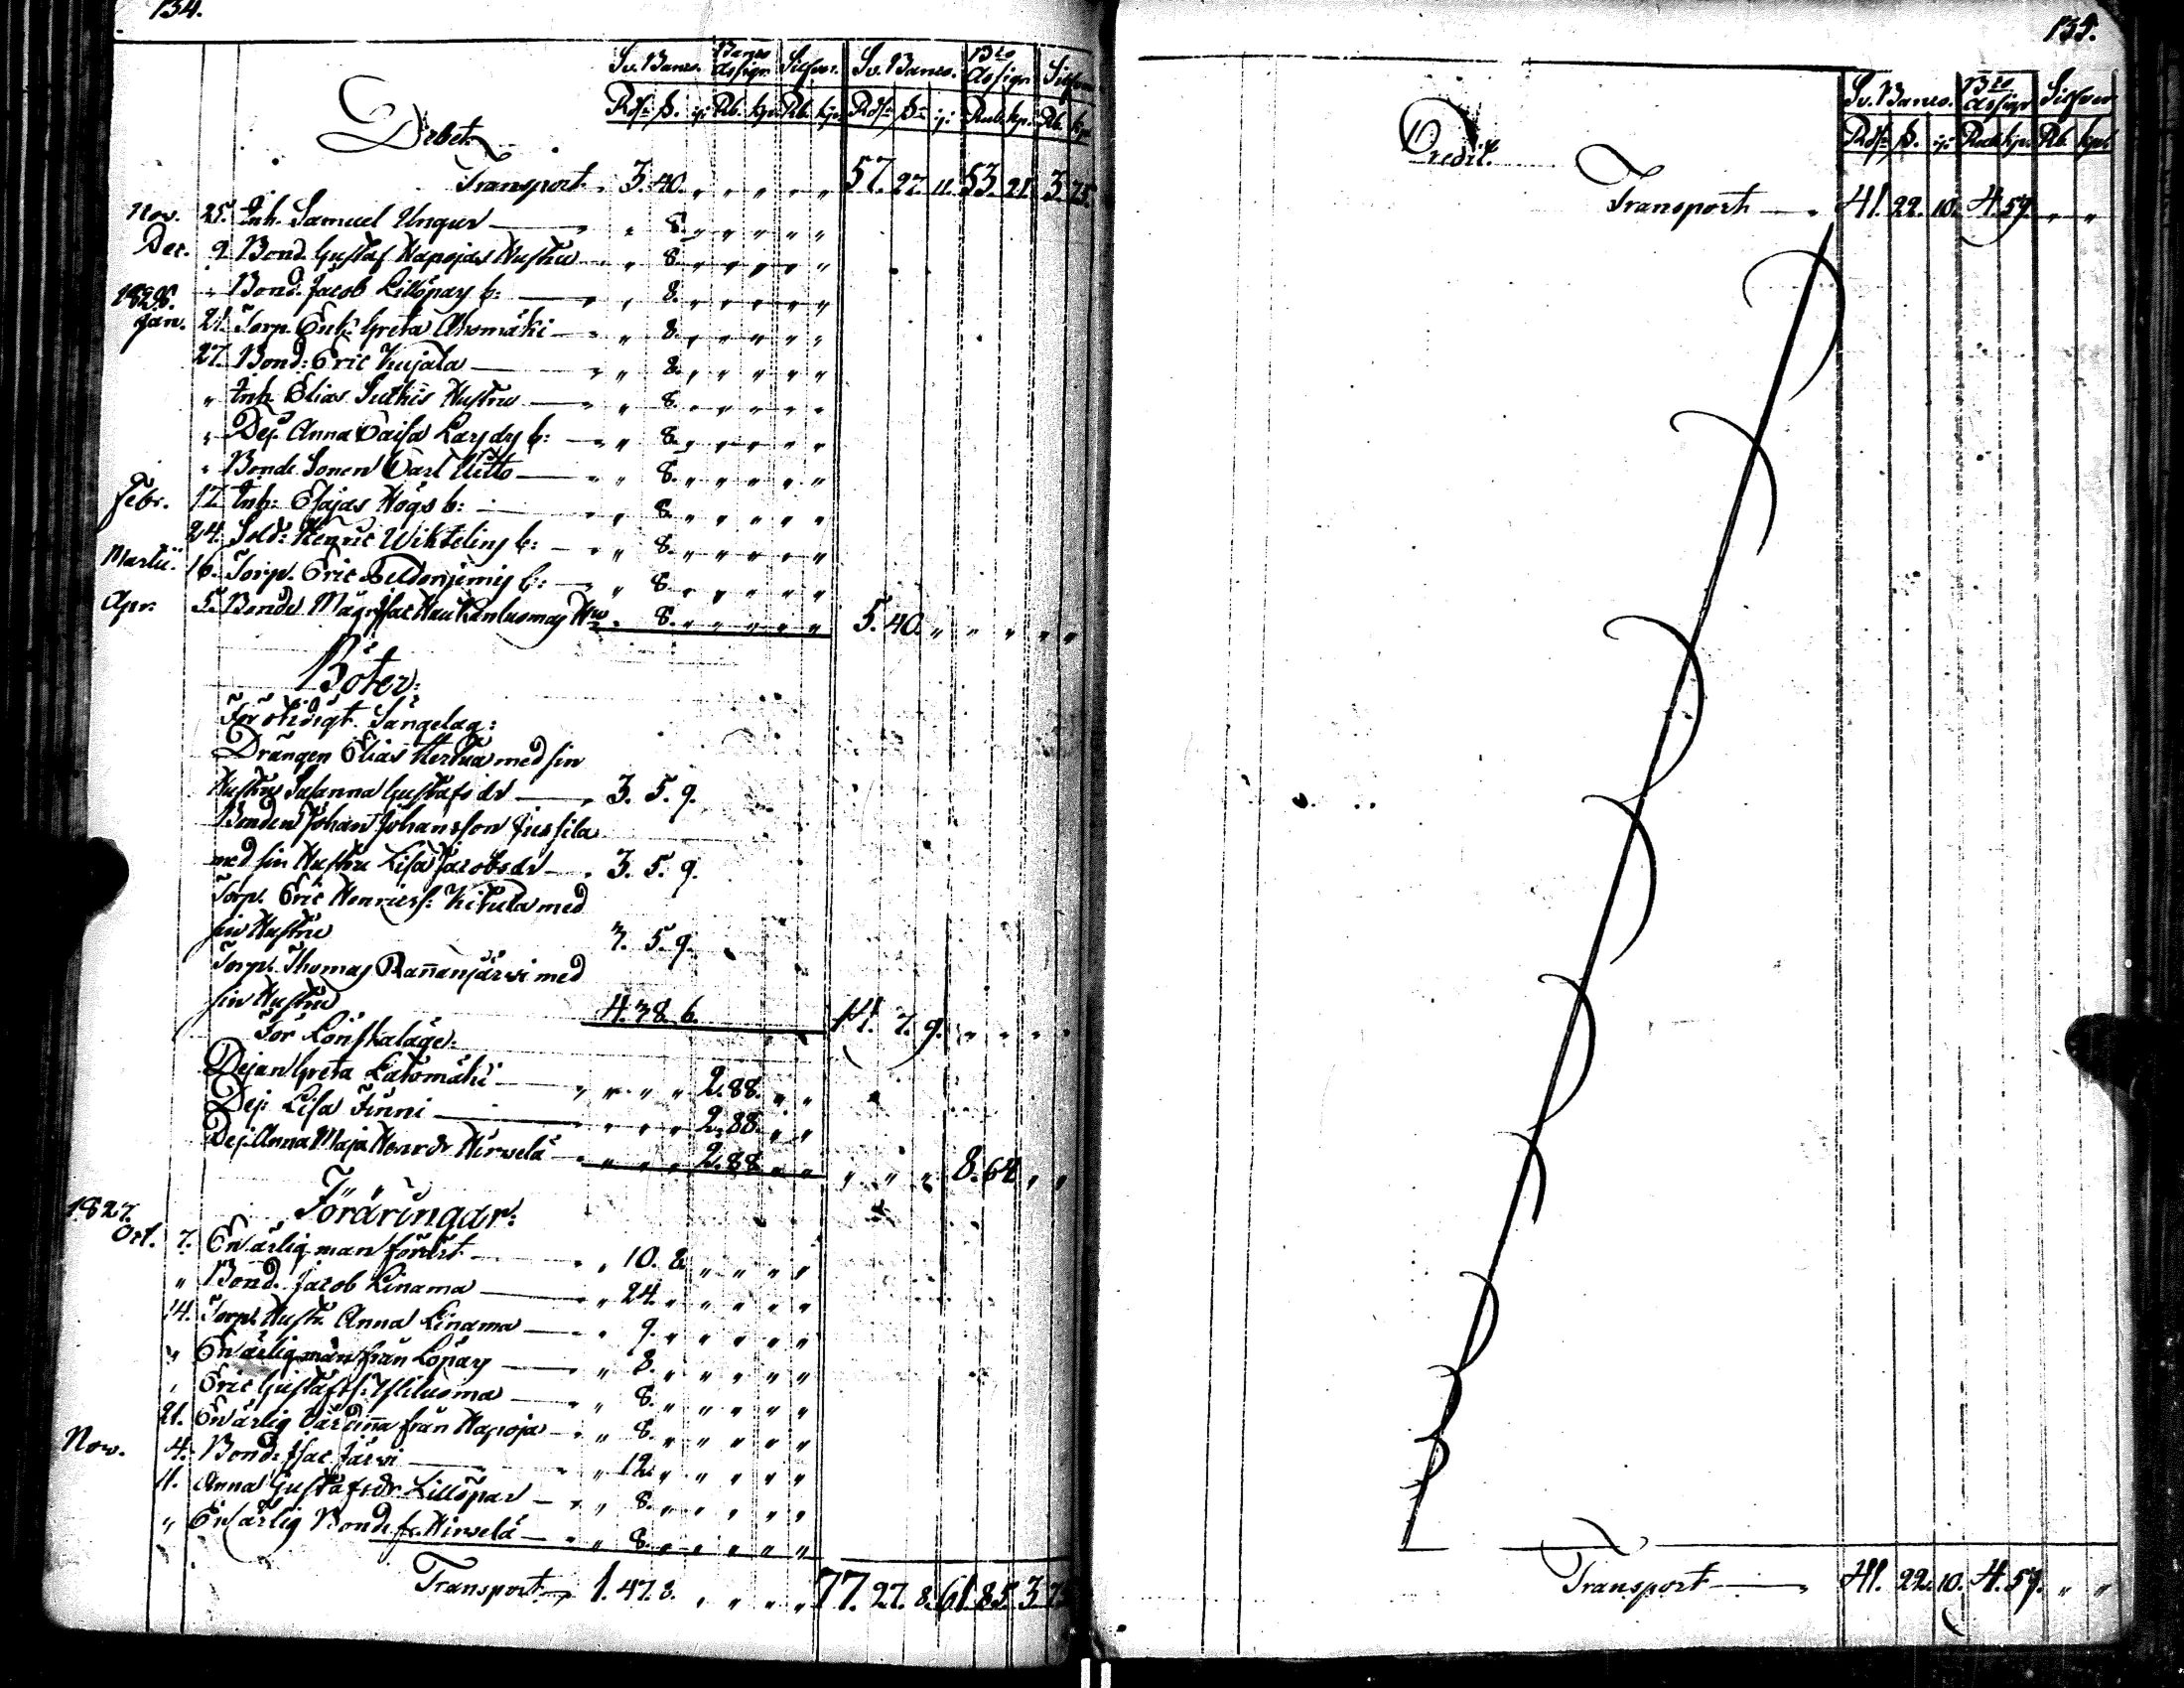 134.
Sv. Banco. Banco Assign. Silfver. Sv. Banco. B:co Assign. Silfver
Rd:r ß. rj: Rb. kp. Rb. kp. Rd:r ß. rj: Rub. kp. Rb. kp.
Debet.
Transport. 3. 40. " " " " " 57. 27. 11. 53. 21. 3. 75.
Nov. 25. Inh. Samuel Ungur — " 8. " " " " "
Dec. 9. Bond. Gustaf Hapojas Hustru — " 8. " " " " "
" Bond. Jacob Lillöpays b: — " 8. " " " " "
1828.
Jan. 21. Torp. Enk: Greta Ahomäki — " 8. " " " " "
27. Bond: Eric Kujala — " 8. " " " " "
" Inh. Elias Hustru — " 8. " " " " "
" Dej. Anna Caisa b: — " 8. " " " " "
" Bonde Sonen Carl Uitto — " 8. " " " " "
Febr. 17. Inh: Esajas Högs b: — " 8. " " " " "
24. Sold: Henric Wiktelins b: — " 8. " " " " "
Martii. 16. Torp. Eric b: — " 8. " " " " "
Apr. 5. Bonde Isac H:u " 8. " " " " " 5. 40. " " " " "
Böter:
För otidigt Sängelag:
Drängen Elias Hertua med sin
Hustru Susanna Gustafs dr — 3. 5. 9.
Bonden Johan Johansson Jussila
med sin Hustru Lisa Jacobs dr — 3. 5. 9.
Torp. Eric Henrics: med
sin Hustru 3. 5. 9.
Torp. Thomas Rañanjärwi med
sin Hustru 4. 38. 6. 14. 7. 9. " " " "
För Lönskaläge:
Dejan Greta Latomäki — " " " " 2. 88. " "
Dej: Lisa Finni — " " " " 2. 88. " "
Dej. Anna Maja Henr dr Hirwelä — " " " " 2. 88. " " " " " 8. 64. " "
Föräringar:
1827.
Oct. 7. En ärlig man förärt — " 10. 8. " " " "
" Bond. Jacob Linama — " 24. " " " " "
14. Torp. Hustr. Anna Linama — " 9. " " " " "
" En ärlig man från Löpays — " 8. " " " " "
" Eric Gustafss: Yliluoma — " 8. " " " " "
21. En ärlig värdiña från Hapoja — " 8. " " " " "
Nov. 4. Bond: Isac Järwi — " 12. " " " " "
11. Anna Gustafs dr Lillöpas — " 8. " " " " "
" En ärlig Bonde fr. Hirwelä — " 8. " " " " "
Transport — 1. 47. 8. " " " " 77. 27. 8. 61. 85. 3. 75.
135.
Sv. Banco. B:co Assign Silfver
Rd:r ß. rj: Rub kp. Rb. kp.
Credit.
Transport — 41. 22. 10. 4. 59. " "
Transport — 41. 22. 10. 4. 59. " "